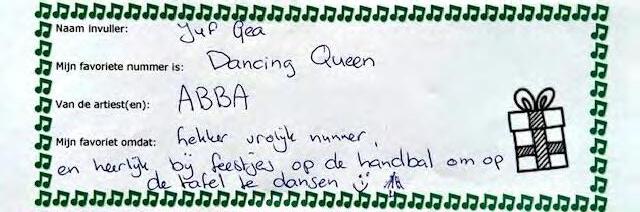 Naam invuller: Juf Gea
Mijn favoriete nummer is: Dancing Queen
Van de artiest(en): ABBA
Mijn favoriet omdat: lekker vrolijk nummer,
en heerlijk bij feestjes op de handbal om op
de tafel te dansen